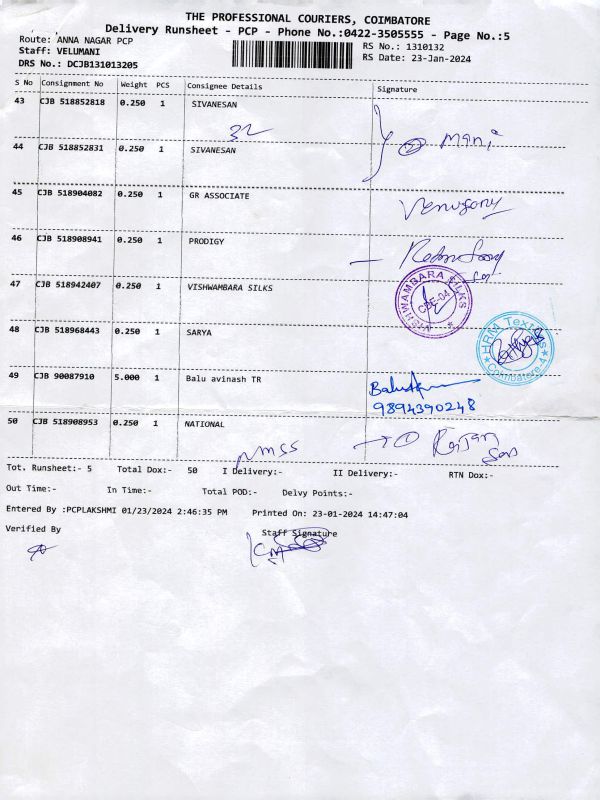 THE PROFESSIONAL COURIERS, COIMBATORE
Delivery Runsheet - PCP - Phone No.:0422-3505555 - Page No.:5
Route: ANNA NAGAR PCP
RS No.: 1310132
Staff: VELUMANI
RS Date: 23-Jan-2024
DRS No.: DCJB131013205
S No Consignment No Weight PCS Consignee Details Signature
43 CJB 518852818 0.250 1 SIVANESAN
32
mani
44 CJB 518852831 0.250 1 SIVANESAN
45 CJB 518904082 0.250 1 GR ASSOCIATE
46 CJB 518908941 0.250 1 PRODIGY
47 CJB 518942407 0.250 1 VISHWAMBARA SILKS
VISHWAMBARA SILKS
CBE-04
48 CJB 518968443 0.250 1 SARYA
HRM Textiles
Coimbatore-4
49 CJB 90087910 5.000 1 Balu avinash TR
9894390248
50 CJB 518908953 0.250 1 NATIONAL
Rajan
Tot. Runsheet:- 5 Total Dox:- 50 I Delivery:- II Delivery:- RTN Dox:-
Out Time:- In Time:- Total POD:- Delvy Points:-
Entered By :PCPLAKSHMI 01/23/2024 2:46:35 PM Printed On: 23-01-2024 14:47:04
Verified By Staff Signature